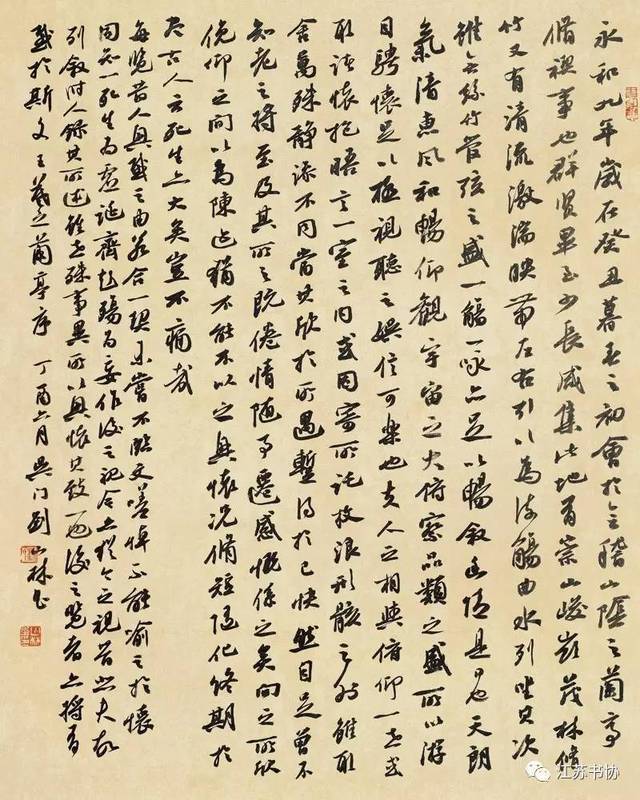 永和九年歲在癸丑暮春之初會於會稽山陰之蘭亭
脩禊事也群賢畢至少長咸集此地有崇山峻嶺茂林脩
竹又有清流激湍映帶左右引以為流觴曲水列坐其次
雖無絲竹管弦之盛一觴一詠亦足以暢敘幽情是日也天朗
氣清惠風和暢仰觀宇宙之大俯察品類之盛所以游
目騁懷足以極視聽之娛信可樂也夫人之相與俯仰一世或
取諸懷抱晤言一室之內或因寄所託放浪形骸之外雖取
舍萬殊靜躁不同當其欣於所遇暫得於己快然自足曾不
知老之將至及其所之既倦情隨事遷感慨係之矣向之所欣
俛仰之間以為陳迹猶不能不以之興懷況脩短隨化終期於
盡古人云死生亦大矣豈不痛哉
每覽昔人興感之由若合一契未嘗不臨文嗟悼不能喻之於懷
固知一死生為虛誕齊彭殤為妄作後之視今亦猶今之視昔悲夫故
列敘時人錄其所述雖世殊事異所以興懷其致一也後之覽者亦將有
感於斯文王羲之蘭亭序 丁酉六月吳門劉
江苏书协